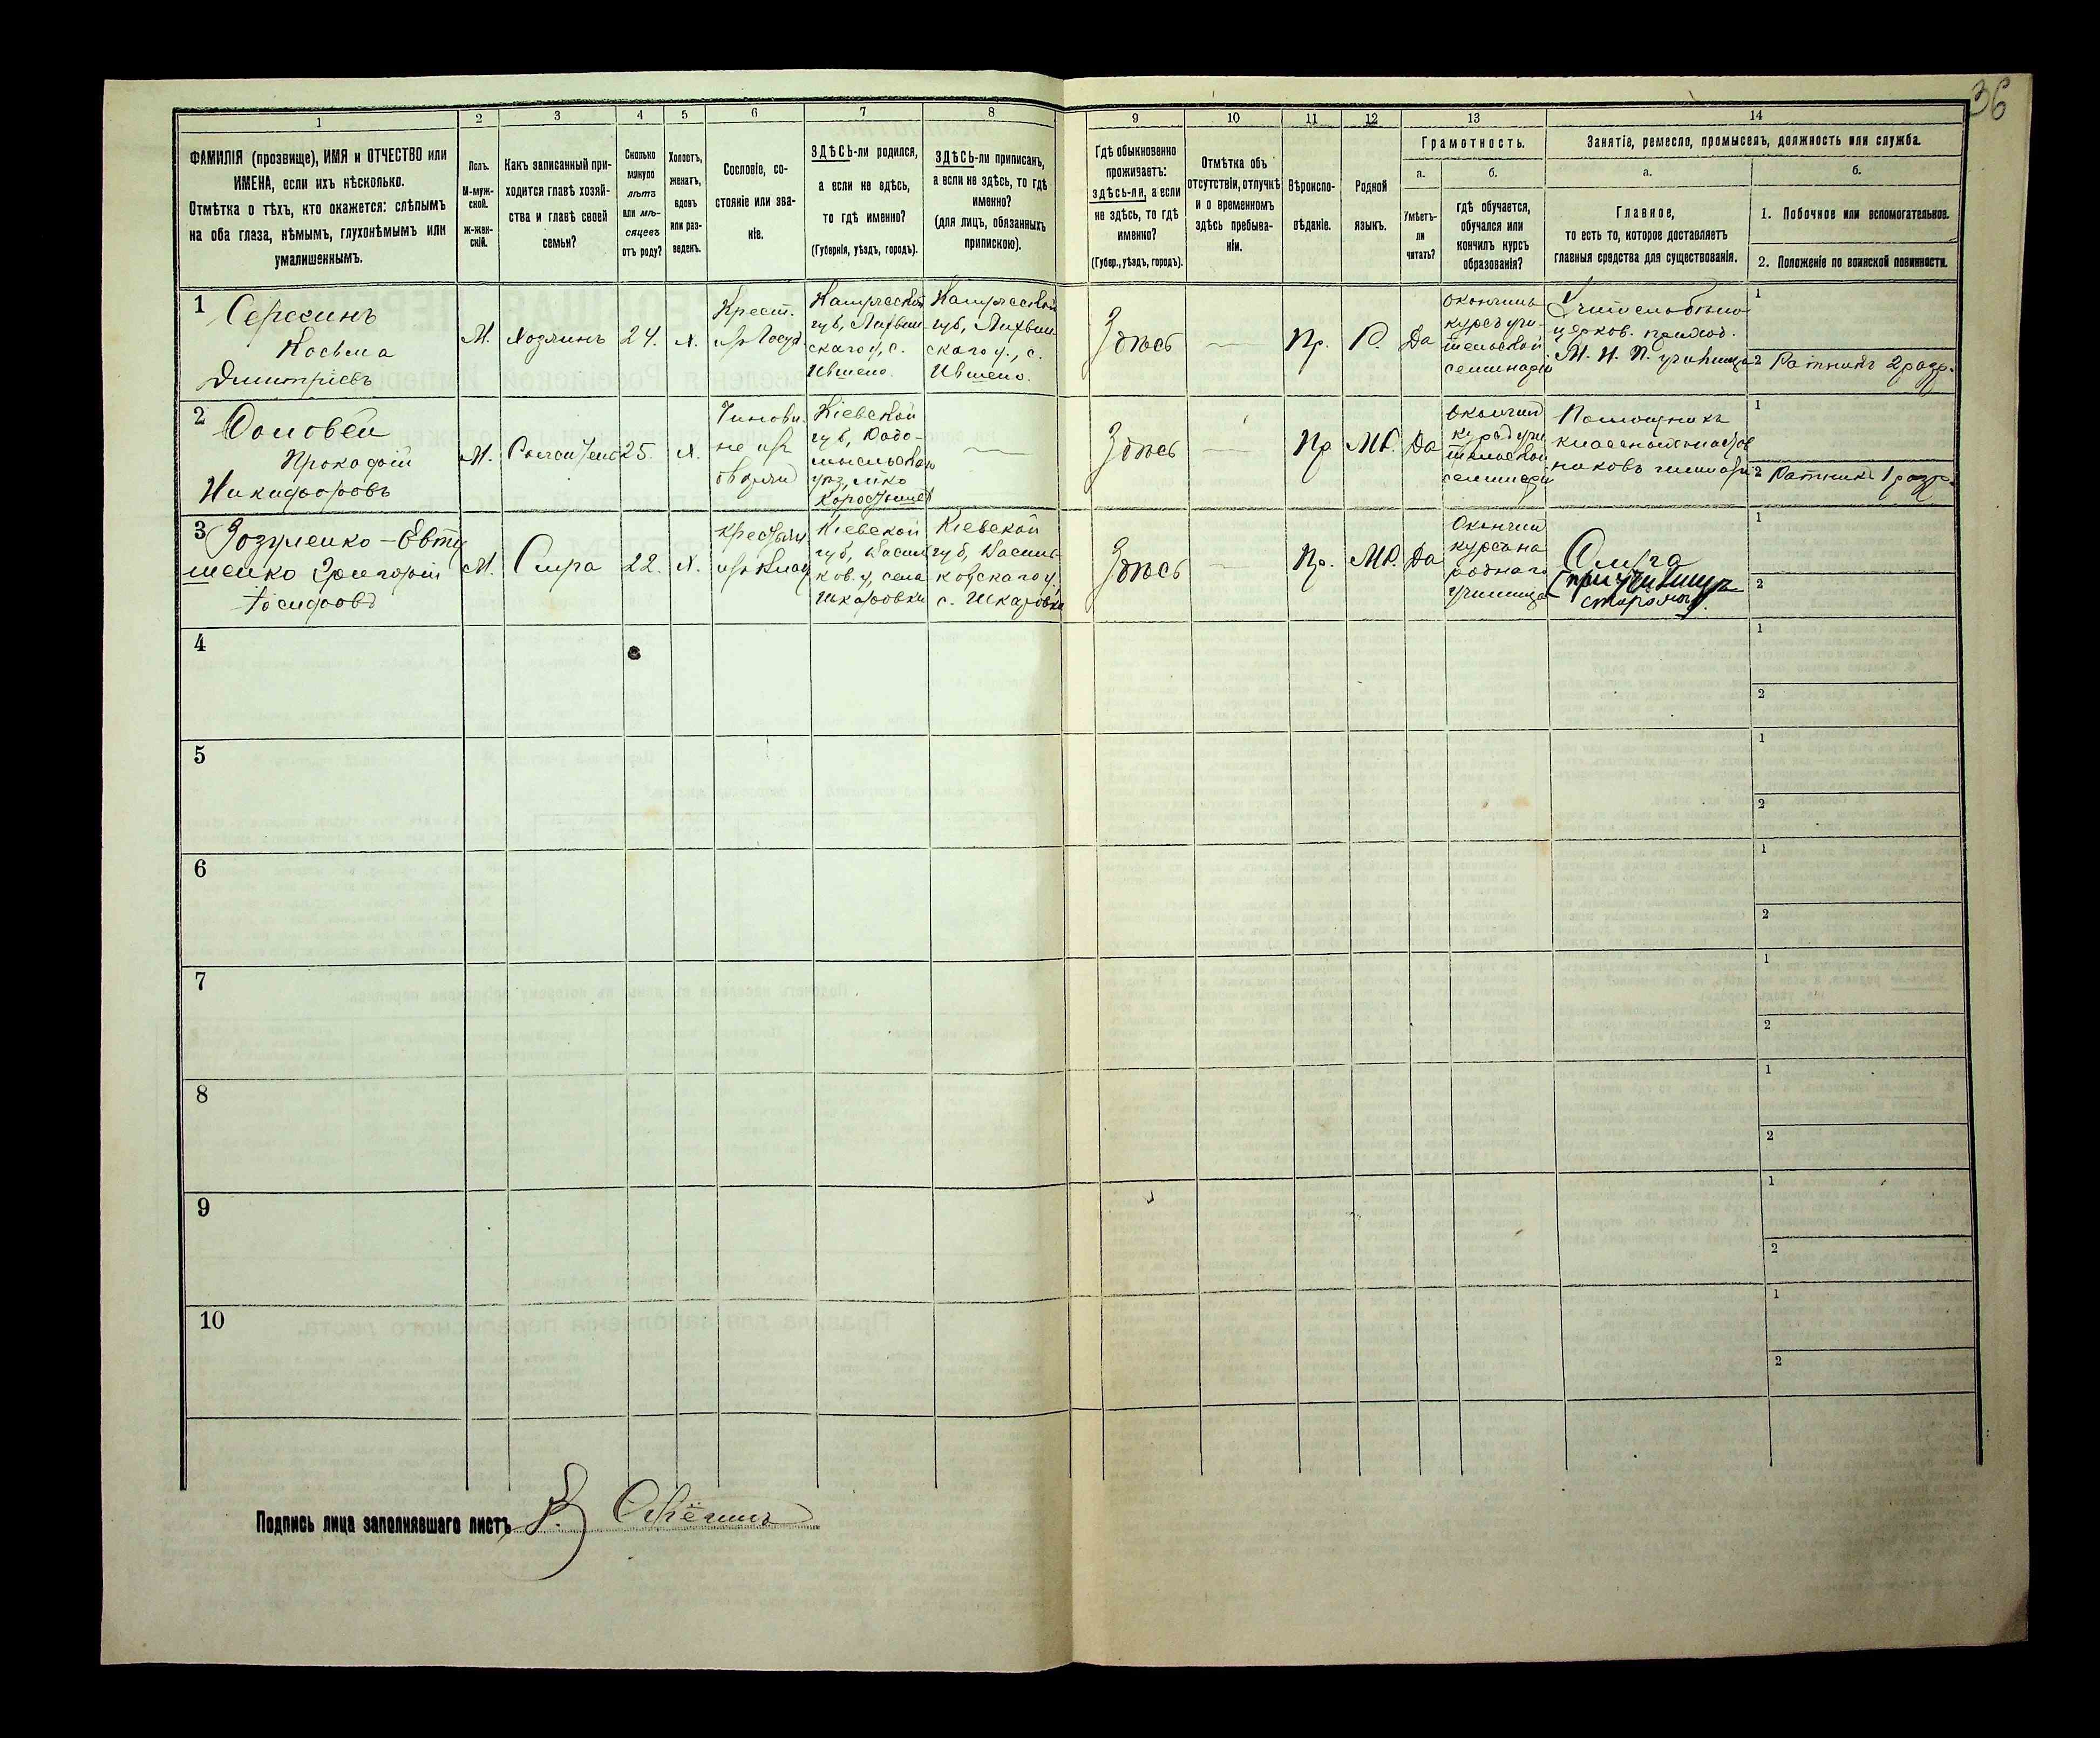 36
1 2 3 4 5 6 7 8 9 10 11 12 13 14
ФАМИЛІЯ (прозвище), ИМЯ и ОТЧЕСТВО или
ИМЕНА, если ихъ нѣсколько.
Отмѣтка о тѣхъ, кто окажется: слѣпымъ
на оба глаза, нѣмымъ, глухонѣмымъ или
умалишеннымъ.
Полъ.
М-муж-
ской.
Ж-жен-
скій.
Какъ записанный при-
ходится главѣ хозяй-
ства и главѣ своей
семьи?
Сколько
минуло
лѣтъ
или мѣ-
сяцевъ
отъ роду?
Холостъ,
женатъ,
вдовъ
или раз-
веденъ.
Сословіе, со-
стояніе или зва-
ніе.
ЗДѢСЬ-ли родился,
а если не здѣсь,
то гдѣ именно?
(Губернія, уѣздъ, городъ).
ЗДѢСЬ-ли приписанъ,
а если не здѣсь, то гдѣ
именно?
(для лицъ, обязанныхъ
припискою).
Гдѣ обыкновенно
проживаетъ:
здѣсь-ли, а если
не здѣсь, то гдѣ
именно?
(Губер., уѣздъ, городъ).
Отмѣтка объ
отсутствіи, отлучкѣ
и о временномъ
здѣсь пребыва-
ніи.
Вѣроиспо-
вѣданіе.
Родной
языкъ.
Грамотность.
а.
Умѣетъ-
ли
читать?
б.
гдѣ обучается,
обучался или
кончилъ курсъ
образованія?
Занятіе, ремесло, промыселъ, должность или служба.
а.
Главное,
то есть то, которое доставляетъ
главныя средства для существованія.
б.
1. Побочное или вспомогательное.
2. Положеніе по воинской повинности.
1
Косьма
Дмитріевъ
М.
Хозяинъ
24.
Х.
Крест.
Калужской
губ, Лихвин-
скаго у, с.
Калужской
губ, Лихвин-
скаго у., с.
Здѣсь
—
Пр.
Р.
Да
окончилъ
курсъ учи-
тельской
семинаріи
церков. приход.
1
2 Ратникъ 2 разр.
2
Прокофій
Никифоровъ
М.
25.
Х.
Кіевской
губ, Радо-
—
Здѣсь
—
Пр
МР.
Да
Окончил
курсъ учи
тельской
семинаріи
Помощникъ
1
2 Ратникъ 1 разр.
3 Зозуленко-Евту
шенко Григорій
Іосифовъ
М.
Слуга
22.
Х.
Кіевской
губ, Васильк
ков. у, села
Шкаровки
Кіевской
губ, Василь-
ковскаго у,
с. Шкаровки
Здѣсь
—
Пр.
МР.
Да
Окончил
курс на
роднаго
училища
Слуга
1
2
4
1
2
5
1
2
6
1
2
7
1
2
8
1
2
9
1
2
10
1
2
Подпись лица заполнявшаго листъ